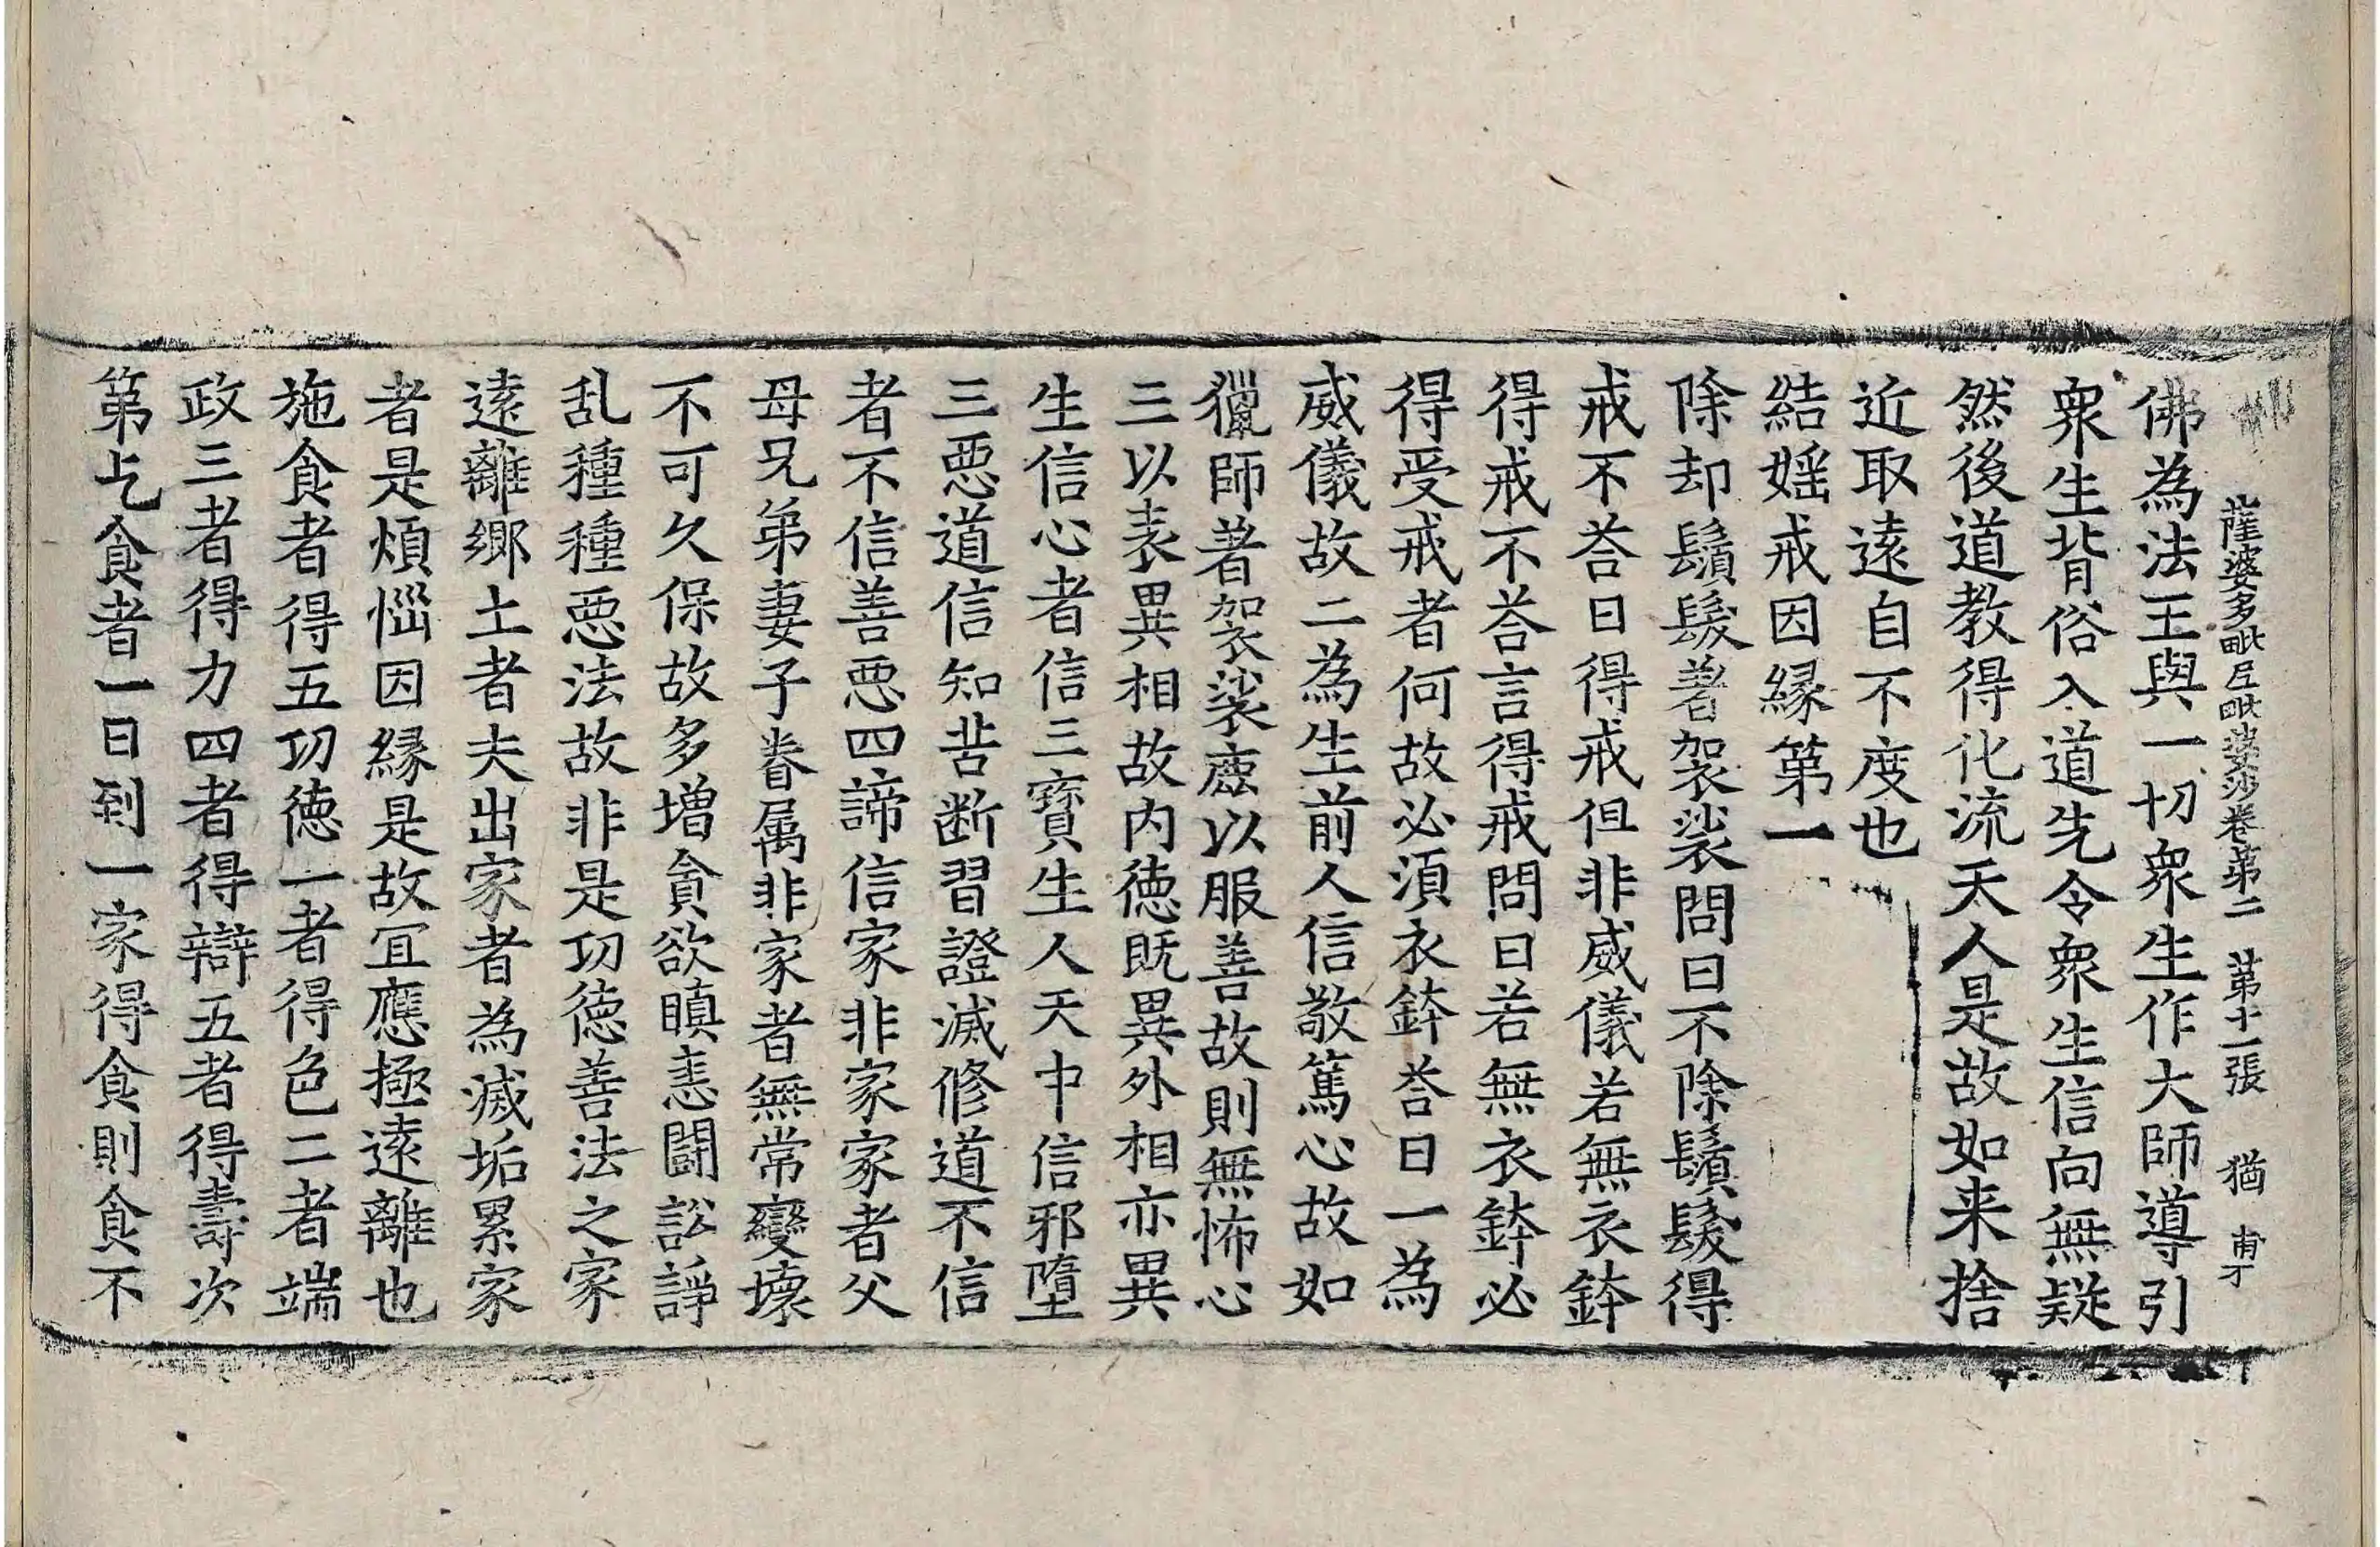 薩婆多毗尼毗婆沙卷第二 第十一張 猶 甫丁
佛為法王與一切衆生作大師導引
衆生背俗入道先令衆生信向無疑
然後道教得化流天人是故如来捨
近取逺自不度也
結婬戒因縁第一
除却鬚髮著袈裟問曰不除鬚髮得
戒不荅曰得戒但非威儀若無衣鉢
得戒不荅言得戒問曰若無衣鉢必
得受戒者何故必湏衣鉢荅曰一為
威儀故二為生前人信敬篤心故如
獵師著袈裟鹿以服善故則無怖心
三以表異相故内徳既異外相亦異
生信心者信三寳生人天中信邪墮
三惡道信知苦断習證滅修道不信
者不信善惡四諦信家非家家者父
母兄弟妻子眷属非家者無常變壊
不可久保故多増貪欲瞋恚闘訟諍
乱種種惡法故非是功徳善法之家
逺離郷土者夫出家者為滅垢累家
者是煩惱因縁是故冝應極逺離也
施食者得五功徳一者得色二者端
政三者得力四者得辯五者得壽次
第乞食者一日到一家得食則食不